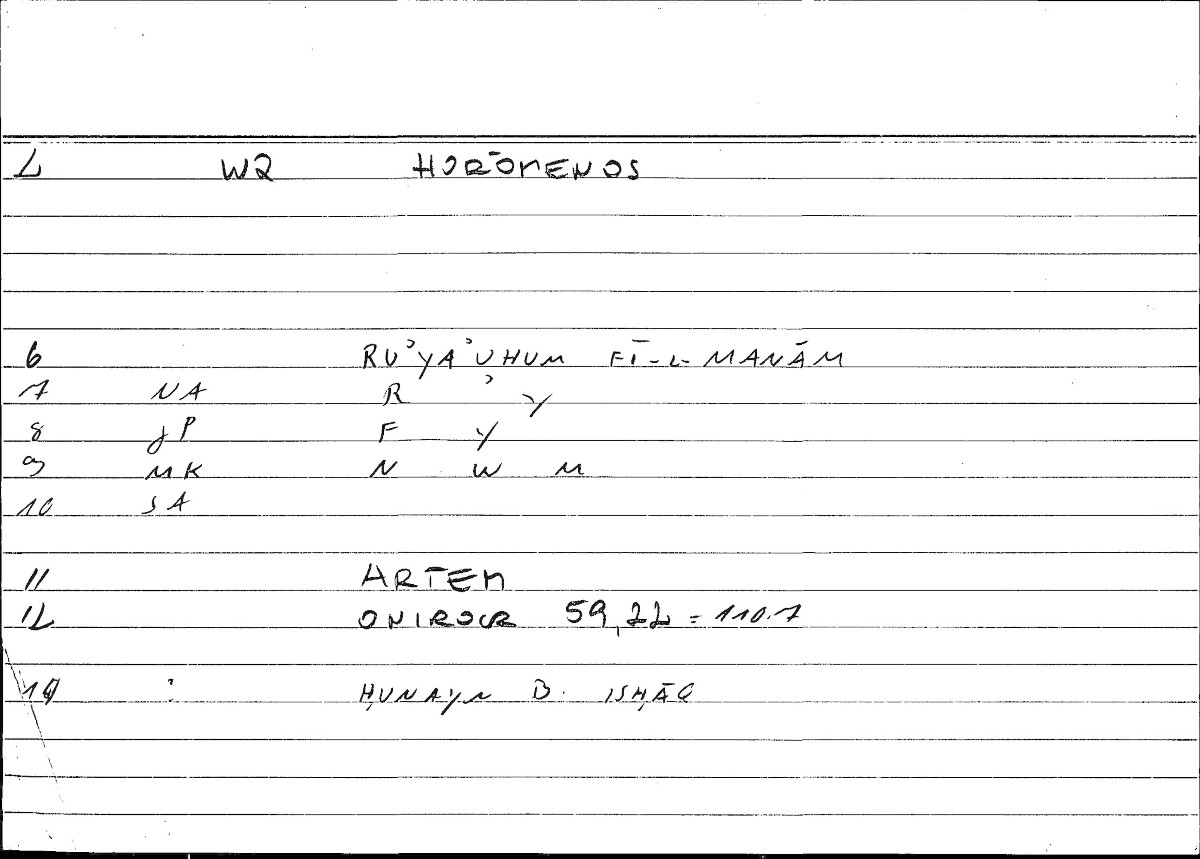 2 WR HORŌMENOS
6 RUʾYAʾUHUM FĪ-L-MANĀM
7 NA R ʾ Y
8 JP F Y
9 MK N W M
10 SA
11 ARTEM
12 ONIROCR 59,22 = 110.7
14 : ḤUNAYN B. ISḤĀQ